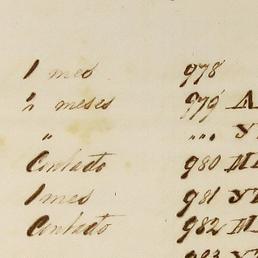 1 mes 978
2 meses 979 A
" "" Y
Contado 980 M
1 mes 981 Y
Contado 982 M
983 Y